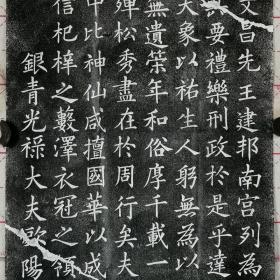 文昌先王建邦南宮列為
要禮樂刑政於是乎達
大象以祐生人躬無為以
無遺榮年和俗厚千載一
殫松秀盡在於周行矣夫
中比神仙咸擅國華以成
信杞梓之藪澤衣冠之領
銀青光祿大夫歐陽